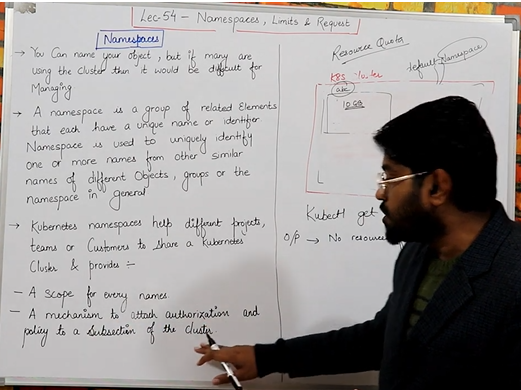 Lec-54 - Namespaces, Limits & Request
Namespaces
→ You Can name your object, but if many are
using the cluster then it would be difficult for
Managing
→ A namespace is a group of related Elements
that each have a unique name or identifier
Namespace is used to uniquely identify
one or more names from other similar
names of different Objects, groups or the
namespace in general
→ Kubernetes namespaces help different projects,
teams or Customers to share a Kubernetes
Cluster & provides :-
- A scope for every names.
- A mechanism to attach authorization and
policy to a Subsection of the cluster.
Resource Quota
default Namespace
K8S cluster
abc
10 GB
Kubectl get
O/P → No resource